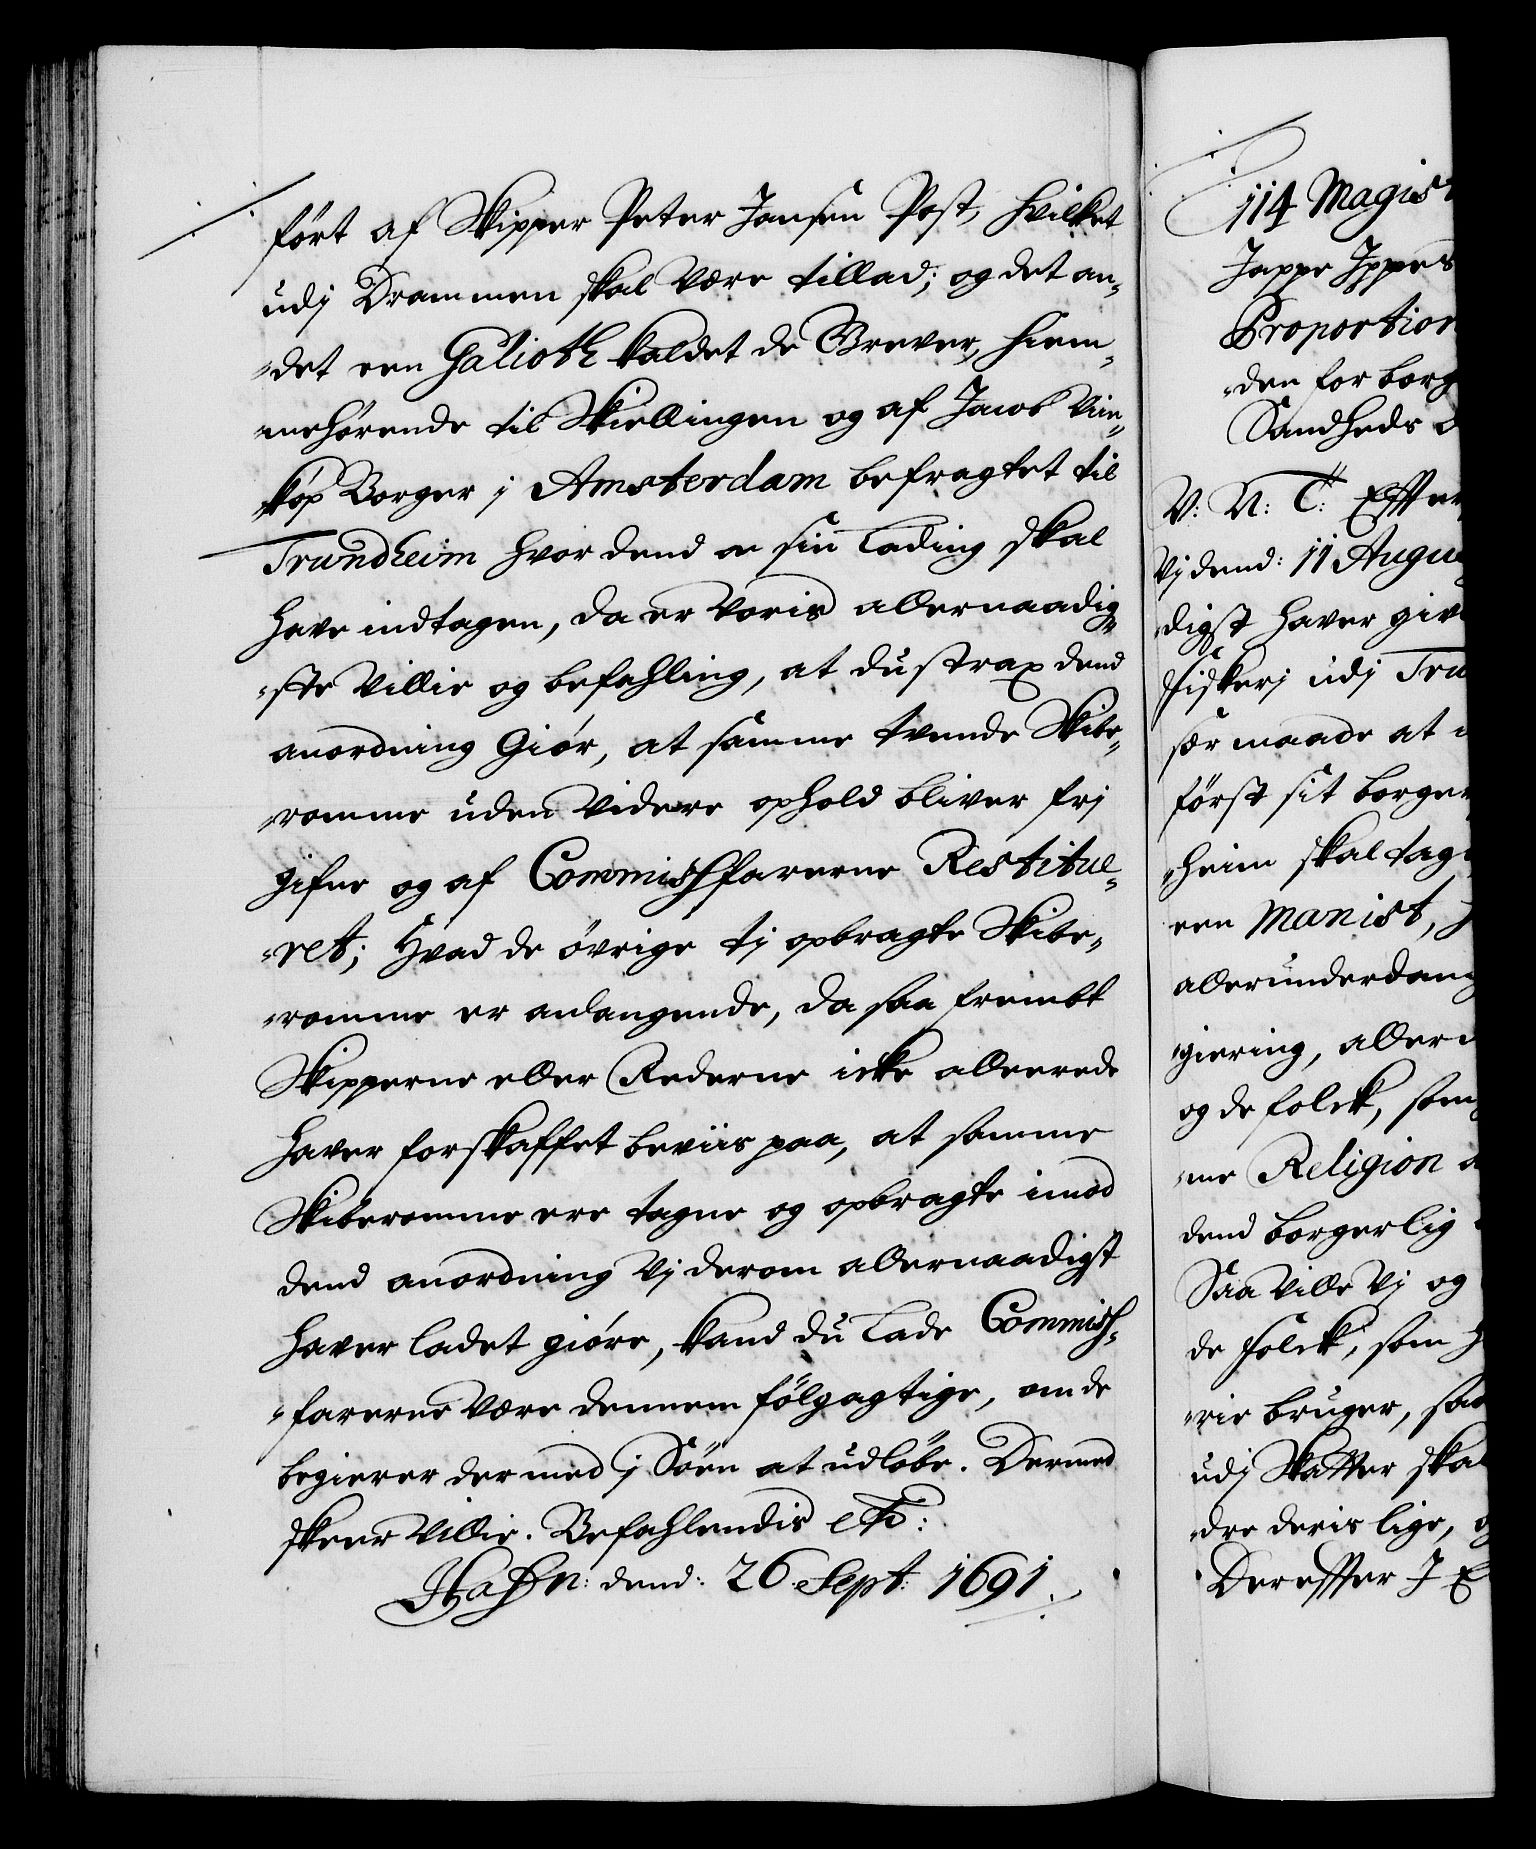 ført af Skipper Peter Jansen Post, hvilket
udj Drammen skal være tillad; og det an-
-det een Galioth kaldet de Brever, hiem-
-mehørende til Skiellingen og af Jacob Vin-
-kop Borger j Amsterdam befragtet til
Trundheim hvor dend en sin Lading skal
have indtagen, da er Voris allernaadig-
-ste Villie og befahling, at du strax dend
anordning Giør, at samme tvende Skibe-
-romme uden videre ophold bliver frj
gifne og af Commissarierne Restitue-
-ret; Hvad de øvrige tj opbragte Skibe-
-romme er anlangende, da saa frembt
Skipperne eller Rederne icke allerede
haver forskaffet beviis paa, at samme
Skiberomme ere tagne og opbragte imod
dend anordning Vj derom allernaadigst
haver ladet giøre, kand du lade Commiss-
-farerne være dennem følgagtige, om de
begierer dermed j Søen at udløbe. Dermed
skeer Villie. Befahlendis etc:
Hafn: dend: 26. Sept: 1691.
114 Magist
Jappe Ippes
Proportion
-den for borg
Sandheds
V: N: T: Effter
Vj dend: 11 Augu
-digst haver giv
fiskerj udj Tru
sær maade at
først sit borger
-heim skal tag
een Manist,
allerunderdan
-giering, aller
og de folck, som
-me Religion
dend borgerlig
Saa Ville Vj og
de folck, som
-rie bruger, saa
udj Skatter skal
-dre deris lige,
Dereffter I